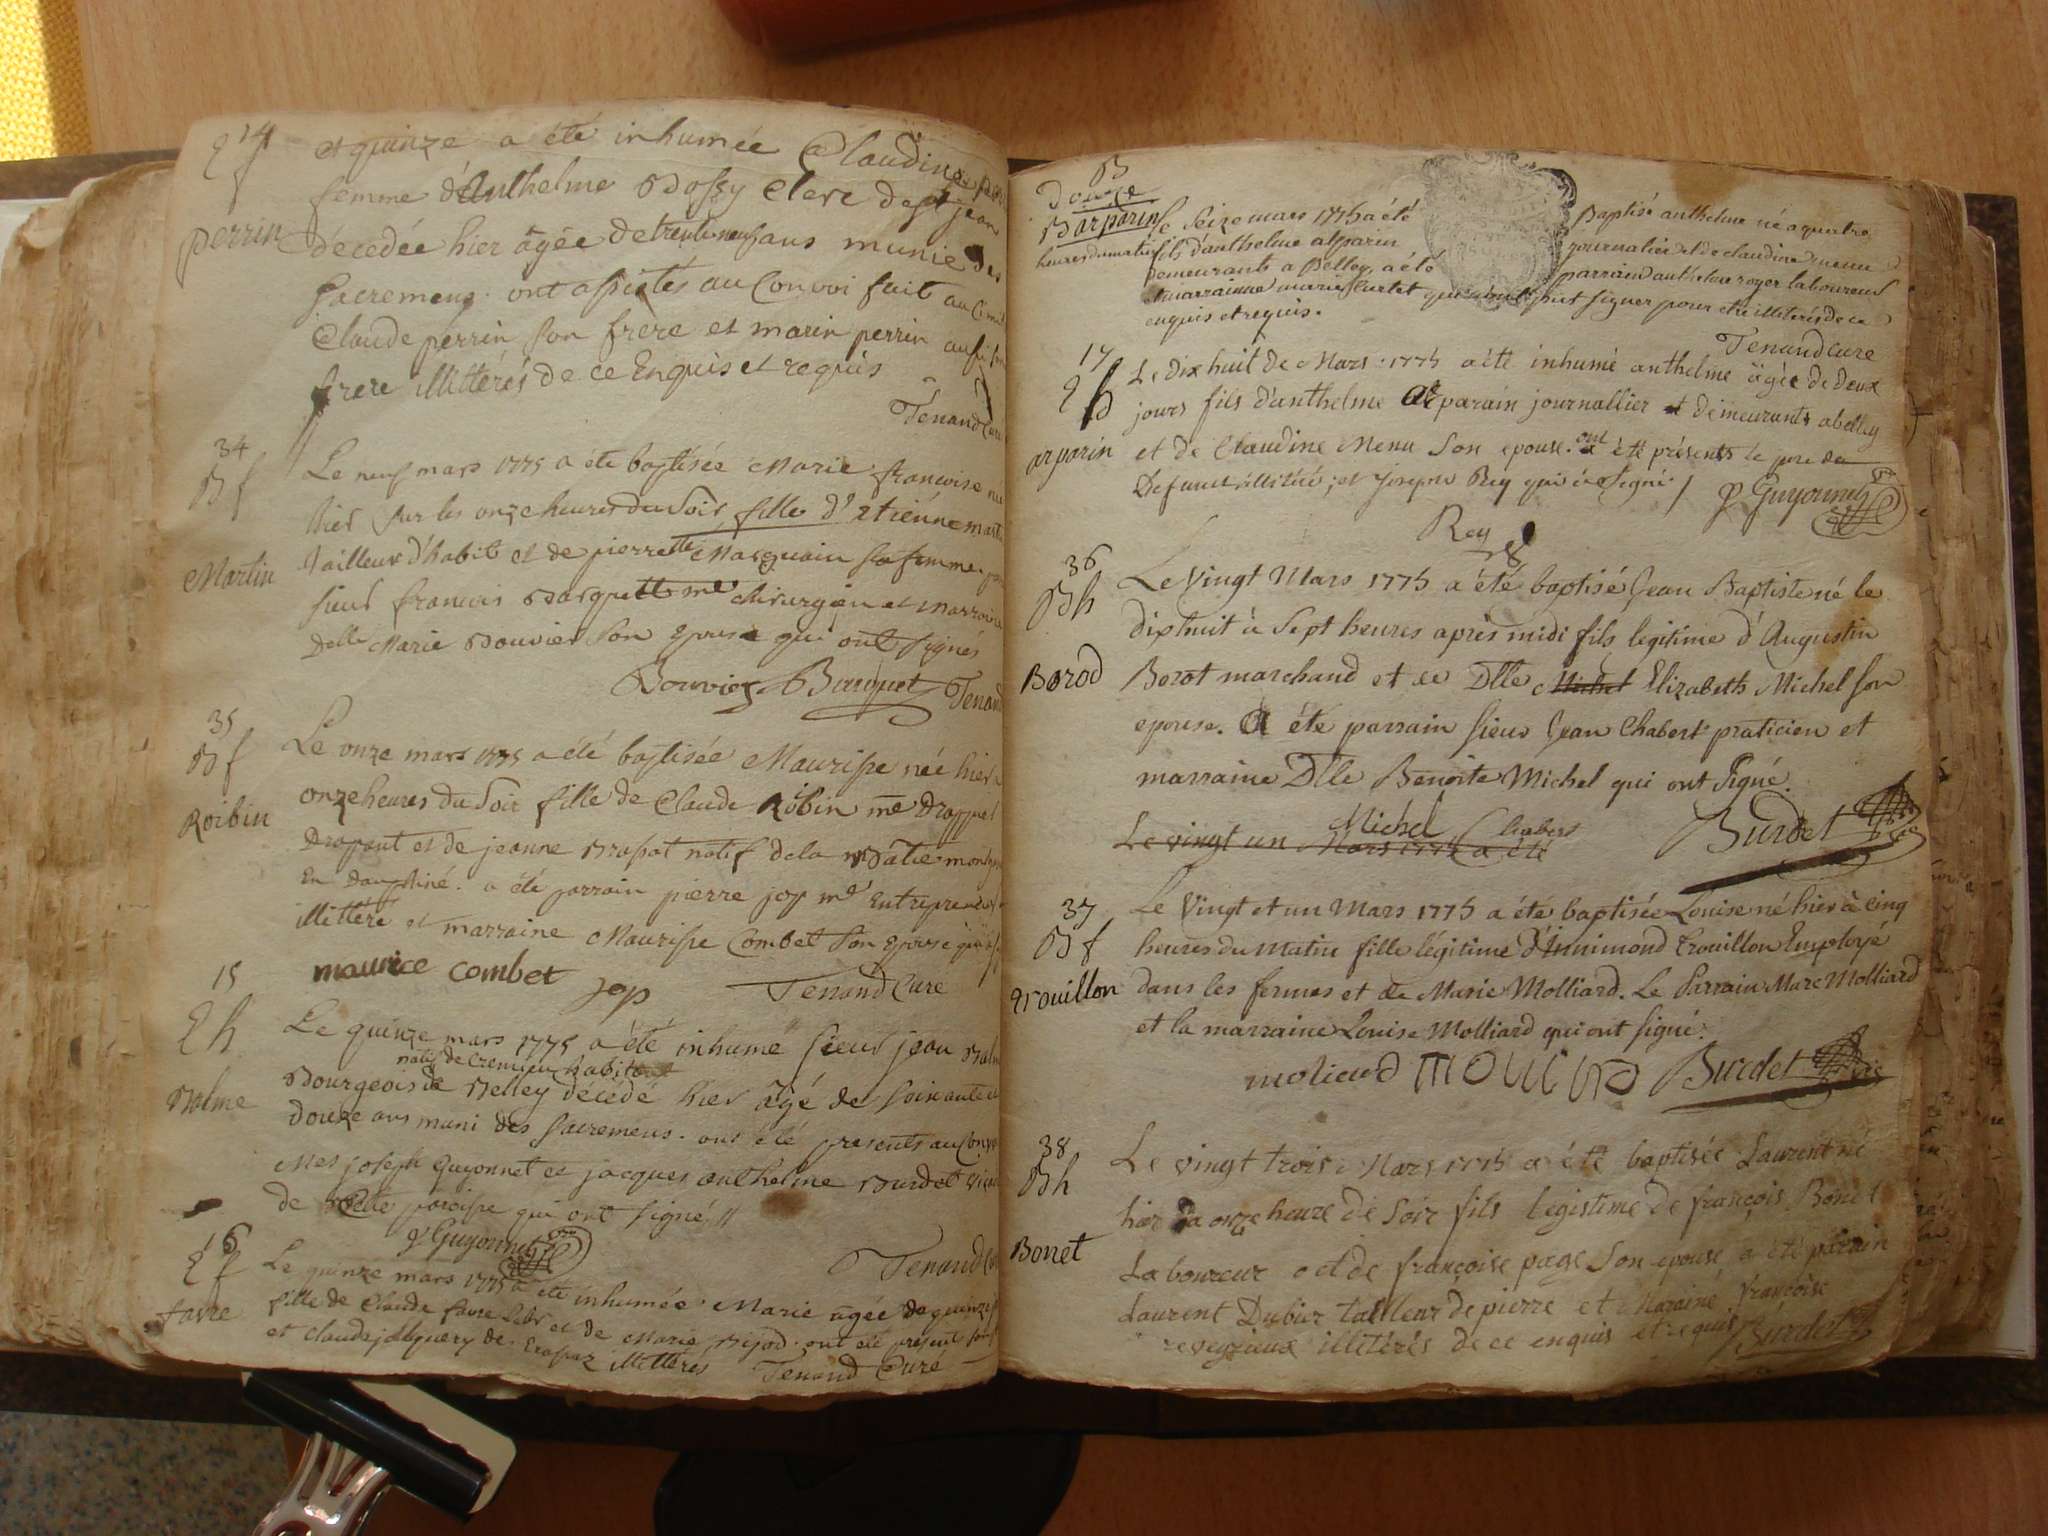 14
Ef
perrin
et quinze a été inhumée Claudine
femme d'Anthelme Bossy Clerc de St jean
décédée hier âgée de trente neuf ans munie des
Sacremens. ont assistés au Convoi fait au
Claude perrin son frère et marin perrin aussi
frere illittérés de ce Enquis et requis
Tenand Curé
34
Bf
Martin
Le neuf mars 1775 a été baptisée Marie francoise née
hier sur les onze heures du Soir, fille d'Etiénne
tailleur d'habit et de pierrette Marquain sa femme.
sieur francois Barquet me Chirurgien et Marraine
Delle Marie Bouvier son Epouse qui ont signés
Bouvier Barquet Tenand
35
Bf
Roibin
Le onze mars 1775 a été baptisée Maurisse née hier
onze heures du Soir fille de Claude Robin me
Drapant et de jeanne natif de la Batie
En Dauphiné. a été parrain pierre jop me Entrepreneur
illittéré et marraine Maurisse Combet son Epouse
maurice combet jop Tenand Curé
15
Eh
Balme
Le quinze mars 1775 a été inhumé sieur jean
natif de Cremieu habitant
Bourgeois de Belley décédé hier âgé de soixante et
douze ans muni des sacremens. ont été presents au
Mes joseph Guyonnet et jacques anthelme Burdet
de cette paroisse qui ont signé //
J Guyonnet Tenand
16
Ef
favre
Le quinze mars 1775 a été inhumée Marie âgée de quinze
fille de Claude favre et de Marie ont été présent
et Claude de illittérés Tenand Curé
B
Douze
Barparin
Le seize mars 1775 a été Baptisé anthelme né a quatre
heures du matin fils d'anthelme alparin journalier et de claudine menu
demeurants a Belley, a été parrain anthelme royer laboureur
et marrainne marie Curtet qui n'ont sut signer pour etre illitérés de ce
enquis et requis.
Tenand Cure
17
Eh
arparin
Le dix huit de Mars 1775 a été inhumé anthelme agée de deux
jours fils d'anthelme arparain journallier et demeurants a belley
et de Claudine Menu son epouse. ont été présents le pere du
Defunct illitéré; et joseph Rey qui a signé. / J Guyonnet
Rey
36
Bh
Borod
Le Vingt Mars 1775 a été baptisé Jean Baptiste né le
dix huit à sept heures après midi fils legitime d'Augustin
Borot marchand et de Dlle Michel Elizabeth Michel son
epouse. A été parrain sieur Jean Chabert praticien et
marraine Dlle Benoite Michel qui ont signé.
Michel Chabert Burdet
Le vingt un Mars 1775 a été
37
Bf
Trouillon
Le Vingt et un Mars 1775 a été baptisée Louise né hier à cinq
heures du matin fille légitime d'Innimond Trouillon Employé
dans les fermes et de Marie Molliard. Le Parrain Marc Molliard
et la marraine Louise Molliard qui ont signé.
moliard Burdet
38
Bh
Bonet
Le vingt trois Mars 1775 a été baptisée Laurent né
hier a onze heure de soir fils legistime de françois Bonet
Laboureur et de françoise page son epouse a été parain
Laurent Dubier tailleur de pierre et Maraine françoise
reveyrieux illitérés de ce enquis et requis Burdet